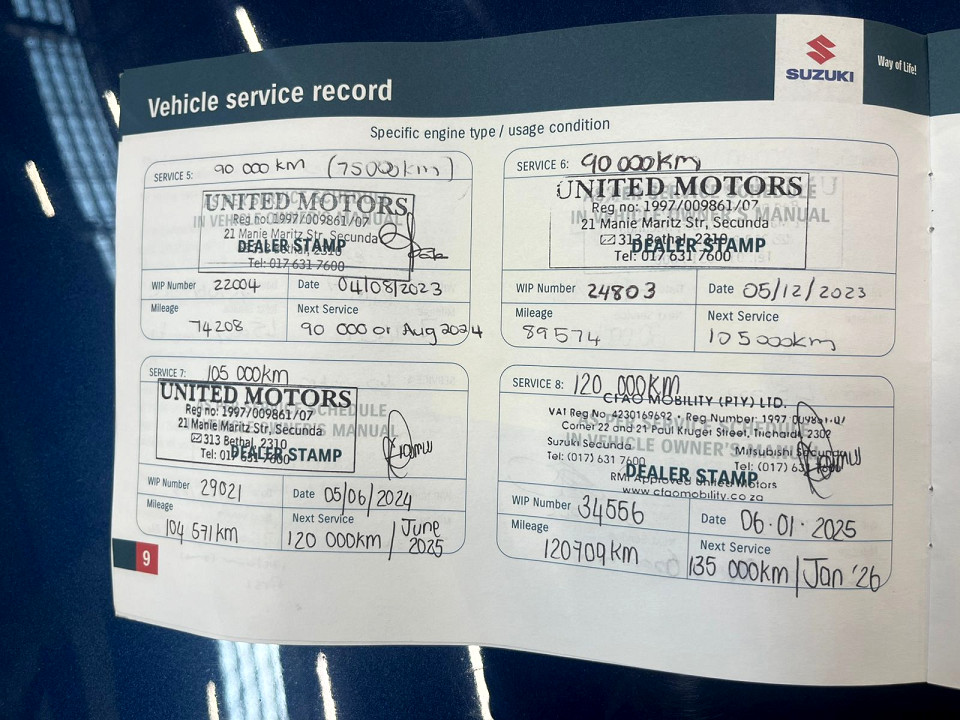 Vehicle service record
SUZUKI
Way of Life!
Specific engine type / usage condition
SERVICE 5: 90 000 km (75000km)
UNITED MOTORS
Reg no: 1997/009861/07
21 Manie Maritz Str, Secunda
313 Bethal, 2310
DEALER STAMP
Tel: 017 631 7600
WIP Number 22004 Date 04/08/2023
Mileage Next Service
74208 90 000 or Aug 2024
SERVICE 6: 90 000km
UNITED MOTORS
Reg no: 1997/009861/07
IN VEHICLE OWNER'S MANUAL
21 Manie Maritz Str, Secunda
313 Bethal, 2310
DEALER STAMP
Tel: 017 631 7600
WIP Number 24803 Date 05/12/2023
Mileage Next Service
89574 105000km
SERVICE 7: 105 000km
UNITED MOTORS
Reg no: 1997/009861/07
21 Manie Maritz Str, Secunda
313 Bethal, 2310
DEALER STAMP
Tel: 017 631 7600
WIP Number 29021 Date 05/06/2024
Mileage Next Service
104 571km 120 000km / June 2025
SERVICE 8: 120 000km
CFAO MOBILITY (PTY) LTD.
VAT Reg No. 4230169692 • Reg. Number: 1997/009861/07
Corner 22 and 21 Paul Kruger Street, Trichardt, 2302
IN VEHICLE OWNER'S MANUAL
Suzuki Secunda Mitsubishi Secunda
Tel: (017) 631 7600 Tel: (017) 63
DEALER STAMP
RMI Approved United Motors
www.cfaomobility.co.za
WIP Number 34556 Date 06·01·2025
Mileage Next Service
120709km 135 000km / Jan '26
9